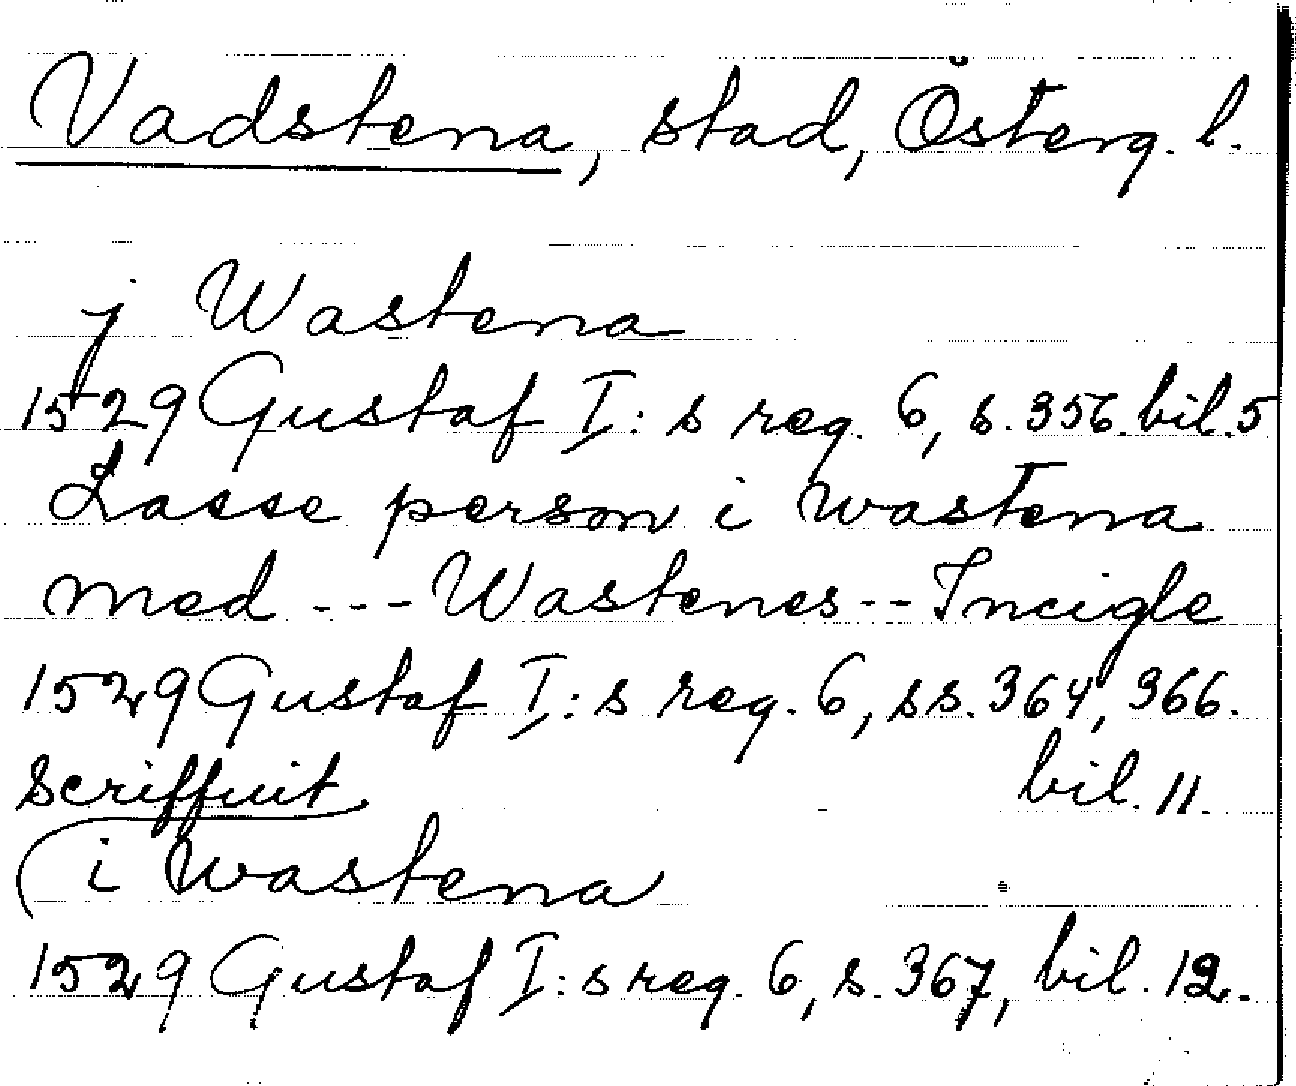 Vadstena, stad, Österg. l.
j Wastena
1529 Gustaf I: s reg. 6, s. 356. bil. 5
Lasse person i wastena
med --- Wastenes -- Incigle
1529 Gustaf I: s reg. 6, ss. 364, 366.
bil. 11.
Scriffuit
i wastena
1529 Gustaf I: s reg. 6, s. 367, bil. 12.